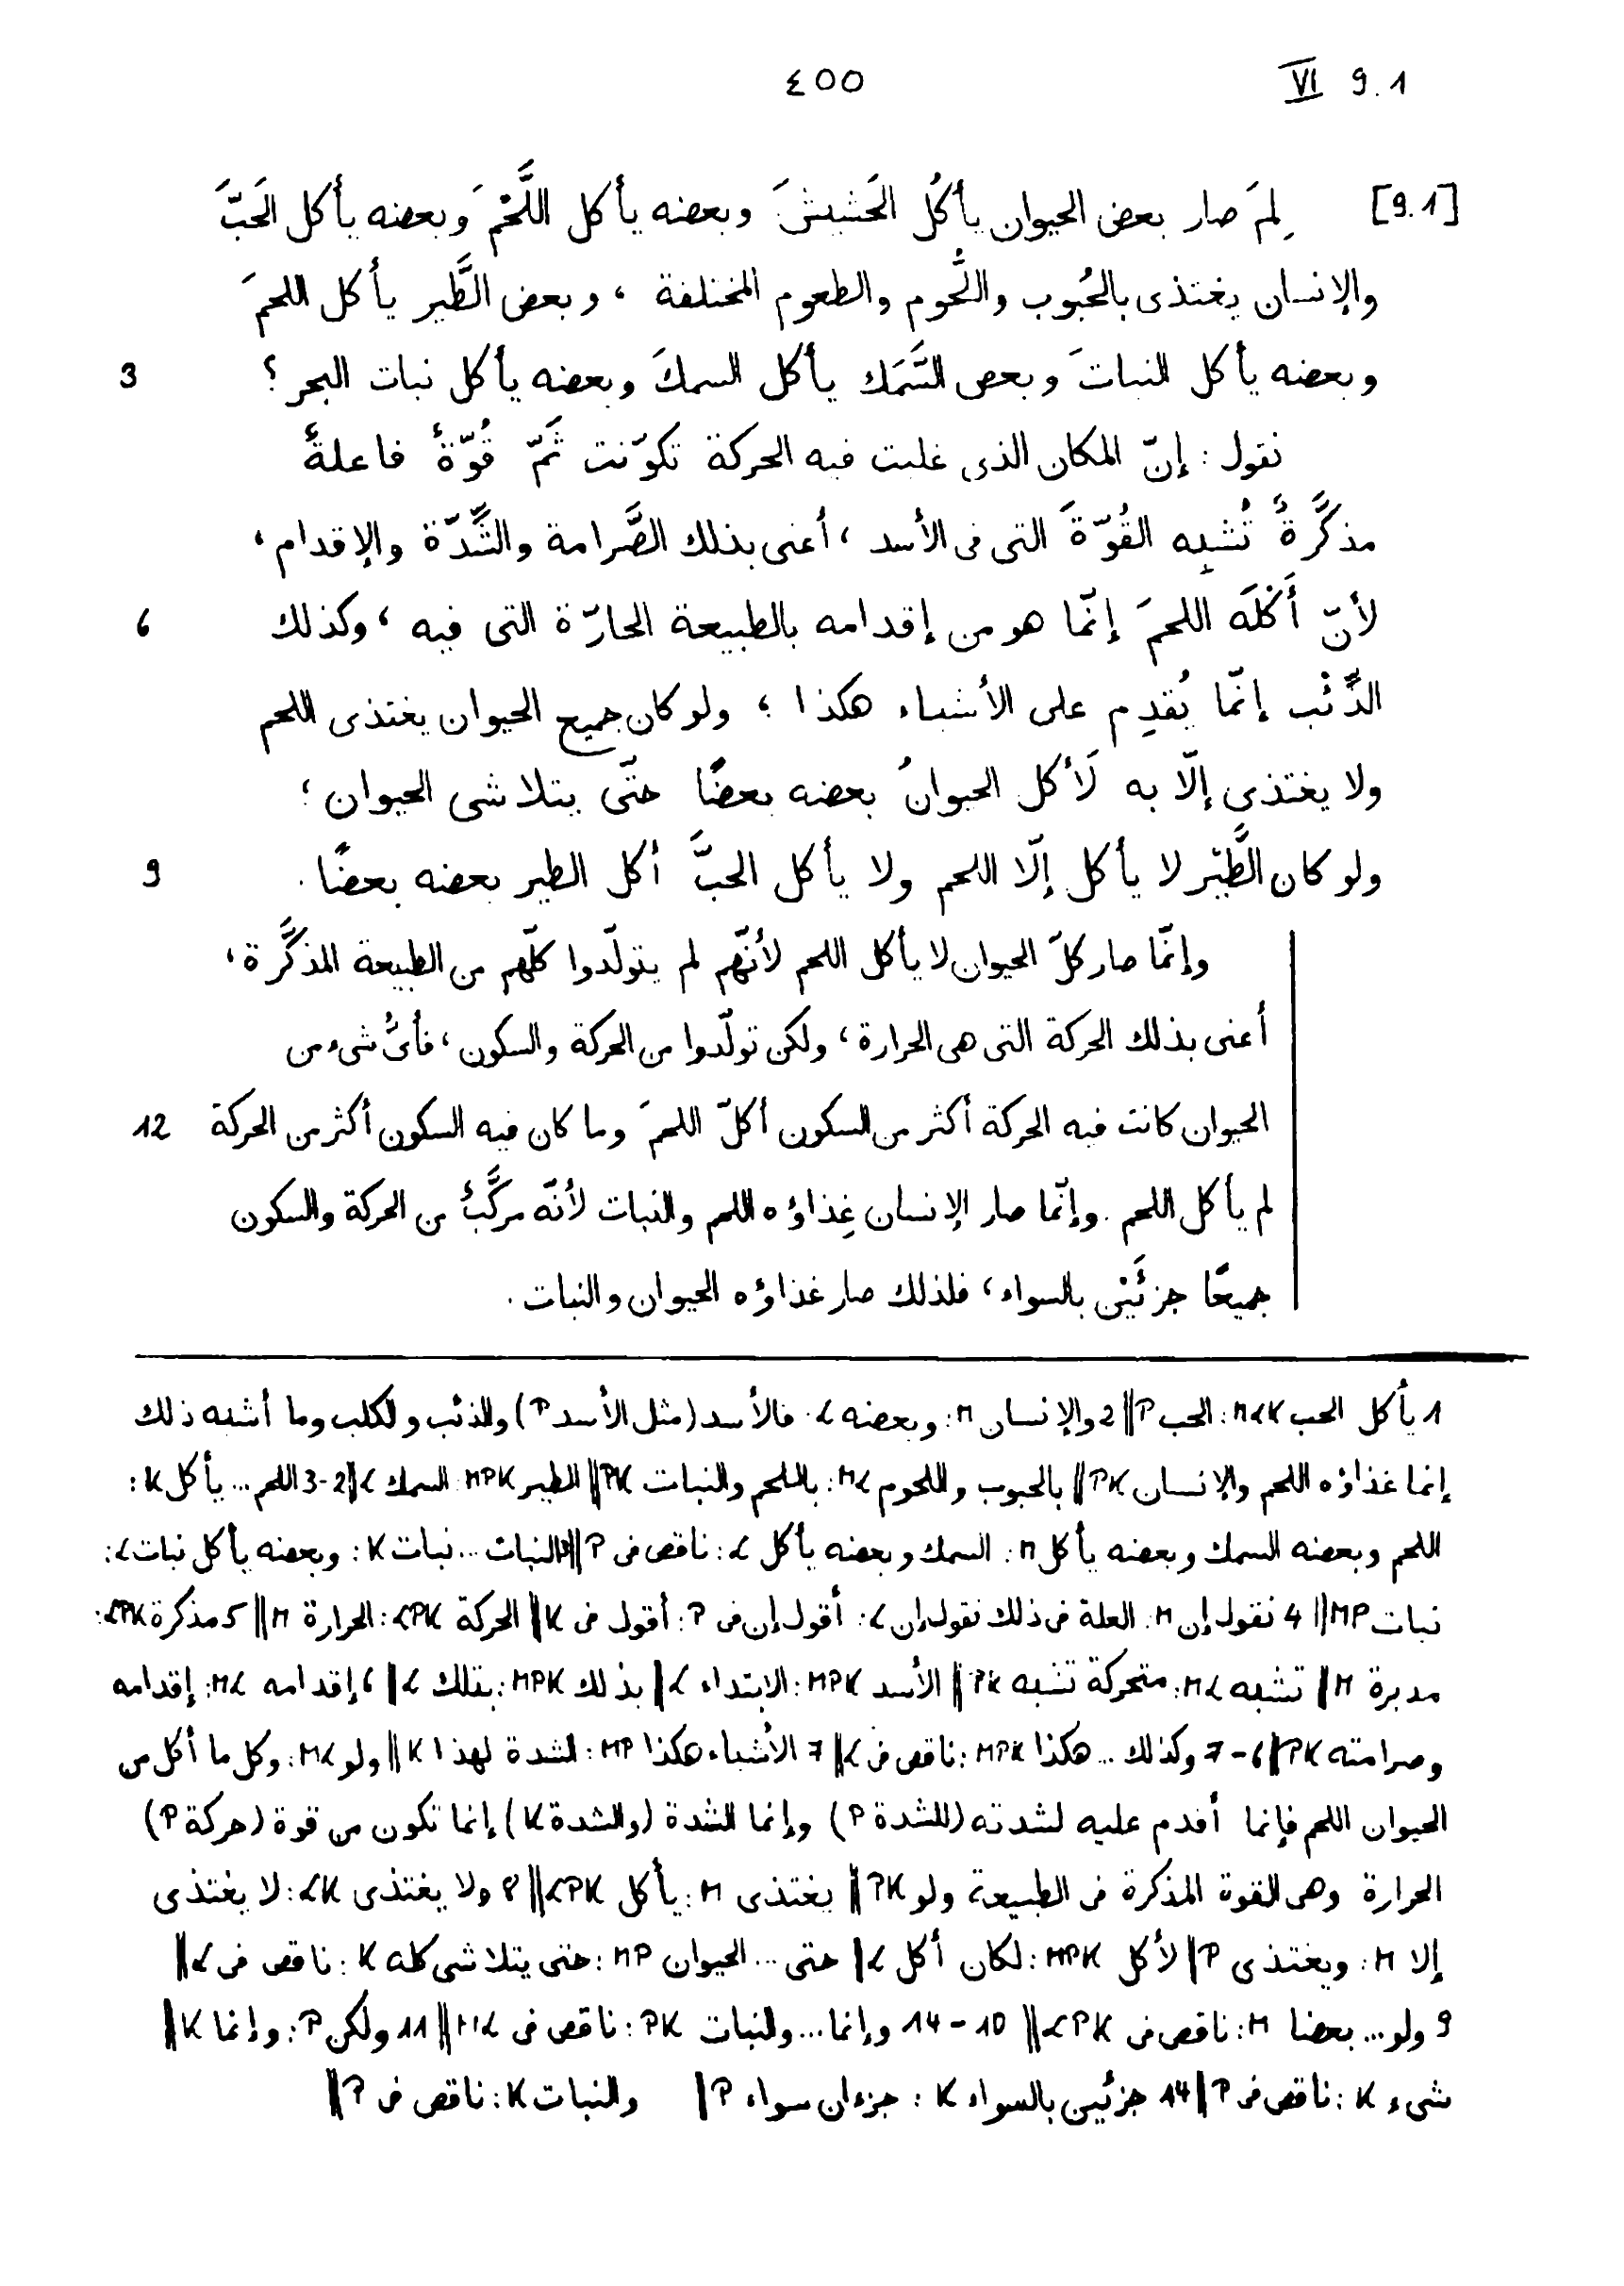 ٤٥٥ VI 9.1
[9.1] لِمَ صار بعض الحيوان يأكُل الحَشيشَ وبعضه يأكل اللَّحْمَ وبعضه يأكل الحَبَّ
والإنسان يغتذى بالحُبوب واللُّحوم والطعوم المختلفة ، وبعض الطَّير يأكل اللحمَ
وبعضه يأكل النباتَ وبعض السَّمَك يأكل السمكَ وبعضه يأكل نبات البحر ؟ 3
نقول : إنّ المكان الذى غلبت فيه الحركة تكوّنت ثَمّ قُوّةٌ فاعلةٌ
مذكَّرةٌ تُشبِه القُوّةَ التى فى الأسد ، أعنى بذلك الصَّرامة والشِّدّة والإقدام ،
لأنّ أَكْلَه اللحمَ إنّما هو من إقدامه بالطبيعة الحارّة التى فيه ، وكذلك 6
الذِّئْب إنّما يُقدِم على الأشياء هكذا ؛ ولو كان جميع الحيوان يغتذى اللحم
ولا يغتذى إلّا به لَأكل الحيوانُ بعضه بعضًا حتّى يتلاشى الحيوان ؛
ولو كان الطَّيْر لا يأكل إلّا اللحم ولا يأكل الحبَّ أكل الطير بعضه بعضًا . 9
وإنّما صار كلّ الحيوان لا يأكل اللحم لأنّهم لم يتولّدوا كلّهم من الطبيعة المذكَّرة ،
أعنى بذلك الحركة التى هى الحرارة ، ولكن تولّدوا من الحركة والسكون ، فأىُّ شىء من
الحيوان كانت فيه الحركة أكثر من السكون أكل اللحمَ وما كان فيه السكون أكثر من الحركة 12
لم يأكل اللحم . وإنّما صار الإنسان غِذاؤه اللحم والنبات لأنّه مركَّبٌ من الحركة والسكون
جميعًا جزئَيْن بالسواء ، فلذلك صار غذاؤه الحيوان والنبات .
1 يأكل الحب MLK : الحب P || 2 والإنسان M : وبعضه L . فالأسد (مثل الأسد P) والذئب والكلب وما أشبه ذلك
إنما غذاؤه اللحم والإنسان PK || بالحبوب واللحوم ML : باللحم والنبات PK || الطير MPK : السمك L || 2-3 اللحم ... يأكل K :
اللحم وبعضه السمك وبعضه يأكل M : السمك وبعضه يأكل L : ناقص فى P || 3 النبات ... نبات K : وبعضه يأكل نبات L :
نبات MP || 4 نقول إن M : العلة فى ذلك نقول إن L : أقول إن فى P : أقول فى K || الحركة LPK : الحرارة M || 5 مذكرة LPK :
مدبرة M || تشبه ML : متحركة تشبه PK || الأسد MPK : الابتداء L || بذلك MPK : بتلك L || 6 إقدامه ML : إقدامه
وصرامته PK || 6-7 وكذلك ... هكذا MPK : ناقص فى L || 7 الأشياء هكذا MP : الشدة لهذا K || ولو ML : وكل ما أكل من
الحيوان اللحم فإنما أقدم عليه لشدته (للشدة P) وإنما الشدة (والشدة K) إنما تكون من قوة (حركة P)
الحرارة وهى القوة المذكرة فى الطبيعة ولو PK || يغتذى M : يأكل LPK || 8 ولا يغتذى LK : لا يغتذى
إلا M : ويغتذى P || لأكل MPK : لكان أكل L || حتى ... الحيوان MP : حتى يتلاشى كله K : ناقص فى L ||
9 ولو ... بعضا M : ناقص فى LPK || 10 - 14 وإنما ... والنبات PK : ناقص فى ML || 11 ولكن P : وإنما K ||
شىء K : ناقص فى P || 14 جزئين بالسواء K : جزءان سواء P || والنبات K : ناقص فى P ||